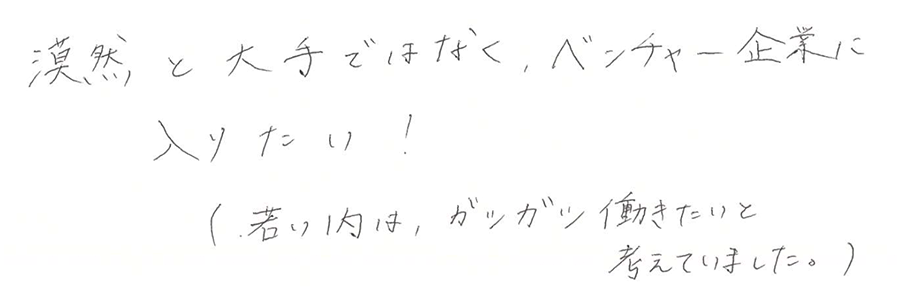 漠然と大手ではなく,ベンチャー企業に
入りたい!
(若い内は,ガツガツ働きたいと
考えていました。)